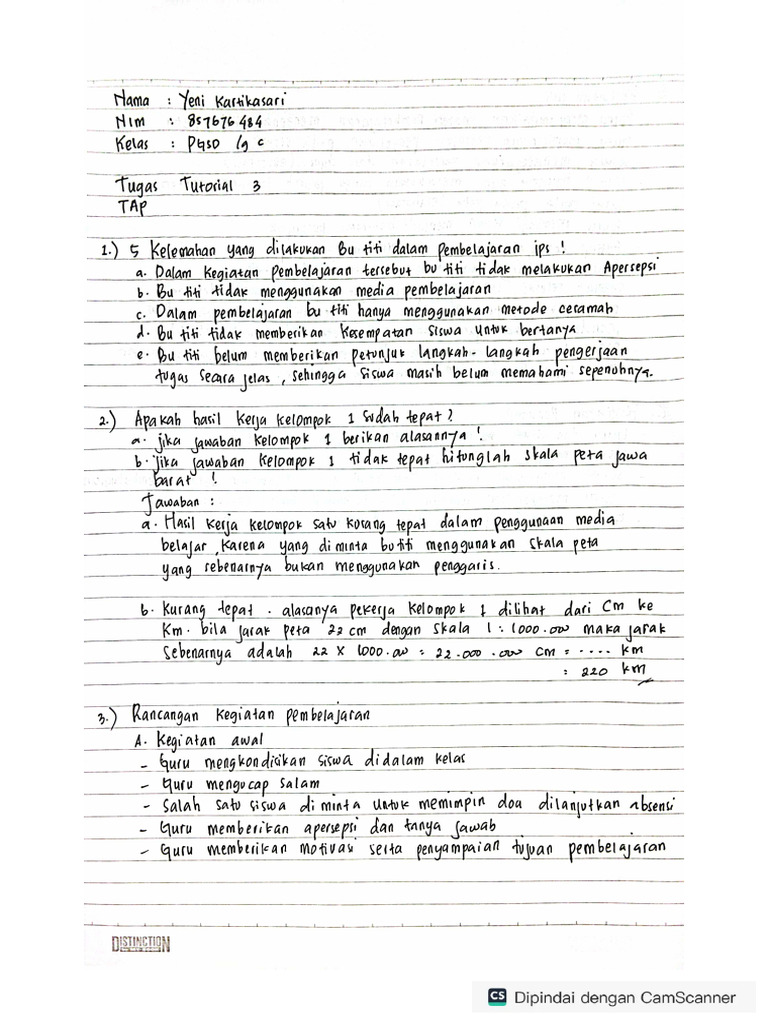 Nama : Yeni Kartikasari
Nim : 857676484
Kelas : PGSD /9 C
Tugas Tutorial 3
TAP
1.) 5 Kelemahan yang dilakukan Bu titi dalam pembelajaran ips !
a. Dalam kegiatan pembelajaran tersebut bu titi tidak melakukan Apersepsi
b. Bu titi tidak menggunakan media pembelajaran
c. Dalam pembelajaran bu titi hanya menggunakan metode ceramah
d. Bu titi tidak memberikan kesempatan siswa untuk bertanya
e. Bu titi belum memberikan petunjuk langkah-langkah pengerjaan
tugas secara jelas, sehingga siswa masih belum memahami sepenuhnya.
2.) Apakah hasil kerja kelompok 1 sudah tepat ?
a. jika jawaban kelompok 1 berikan alasannya !
b. jika jawaban kelompok 1 tidak tepat hitunglah skala peta jawa
barat !
Jawaban :
a. Hasil kerja kelompok satu kurang tepat dalam penggunaan media
belajar, karena yang di minta bu titi menggunakan skala peta
yang sebenarnya bukan menggunakan penggaris.
b. Kurang tepat. alasanya pekerja kelompok 1 dilihat dari Cm ke
Km. bila jarak peta 22 cm dengan skala 1 : 1000.000 maka jarak
Sebenarnya adalah 22 X 1000.000 = 22.000.000 cm = .... km
= 220 km
3.) Rancangan kegiatan pembelajaran
A. Kegiatan awal
- Guru mengkondisikan siswa didalam kelas
- Guru mengucap salam
- Salah satu siswa di minta untuk memimpin doa dilanjutkan absensi
- Guru memberikan apersepsi dan tanya jawab
- Guru memberikan motivasi serta penyampaian tujuan pembelajaran
DISTINCTION
CS Dipindai dengan CamScanner